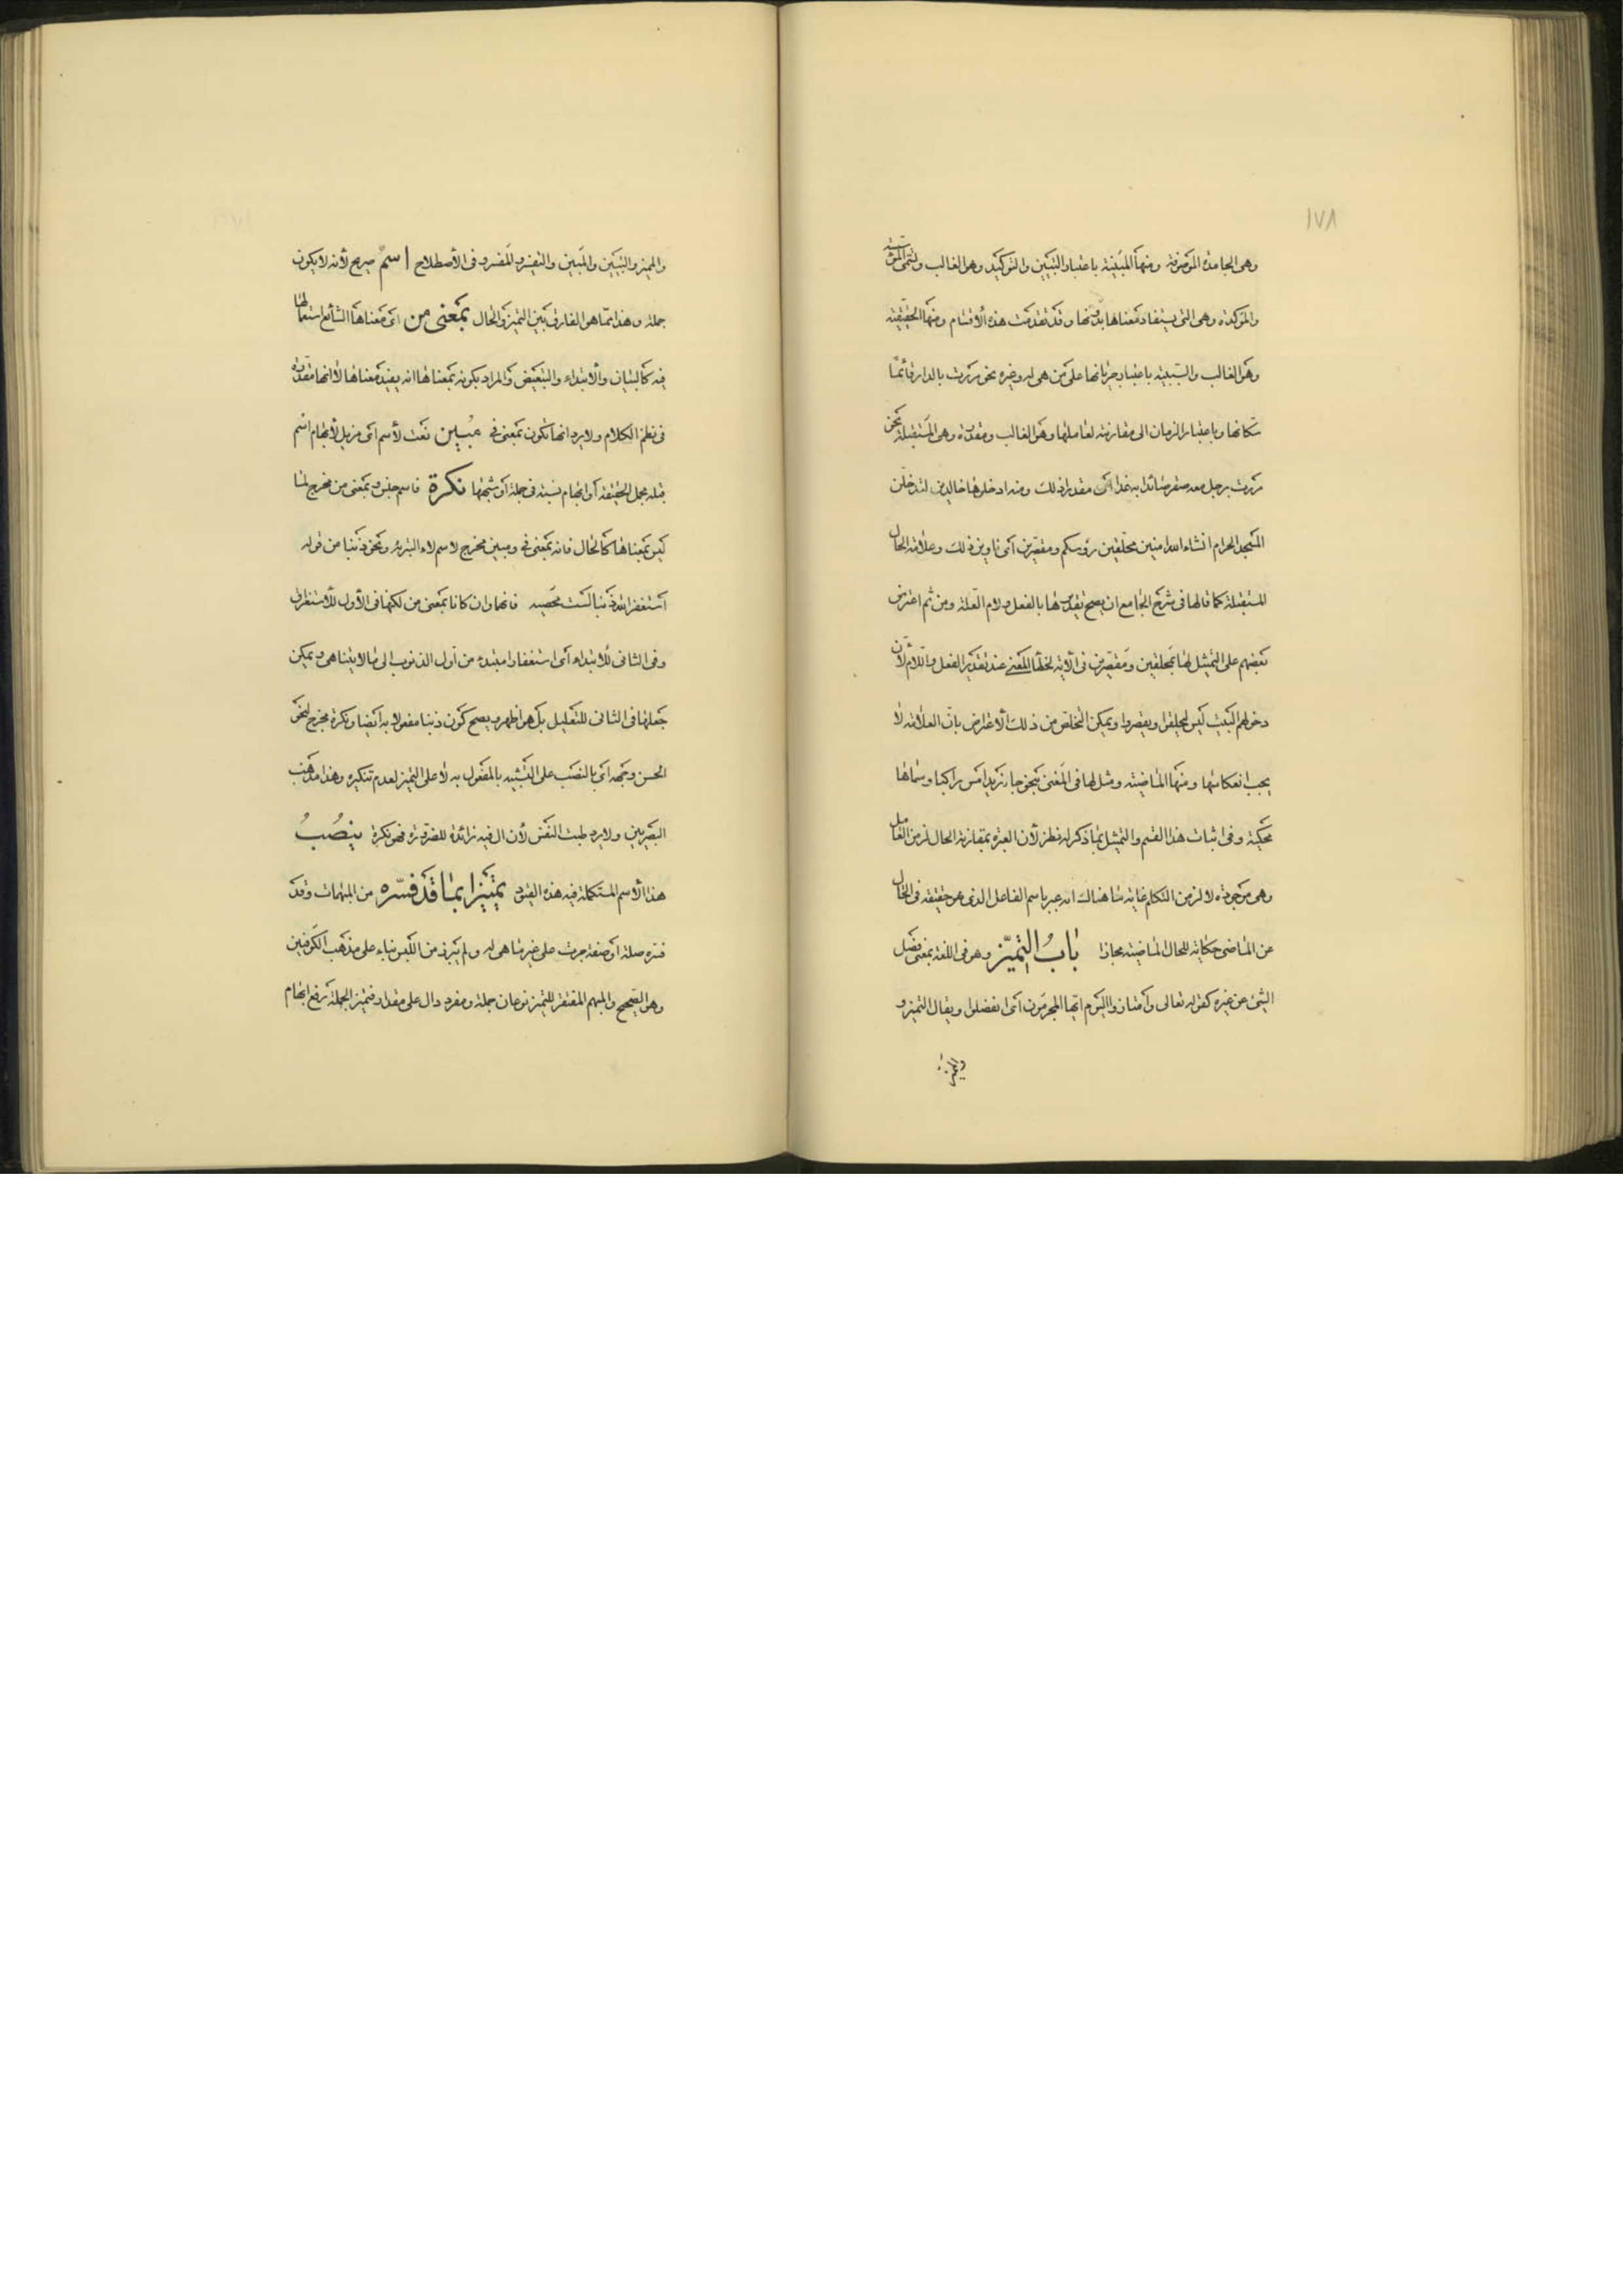 ١٧٨
وهى الجامدة الموصوفة ومنها المبينة باعتبار التبيين والتوكيد وهو الغالب وتسمى المؤسسة
والمؤكدة وهى التى يستفاد معناها بدونها وقد تقدمت هذه الأقسام ومنها الحقيقية
وهو الغالب والسببية باعتبار جريانها على من هى له وغيره نحو مررت بالدار قائما
سكانها وباعتبار الزمان الى مقارنة لعاملها وهو الغالب ومقدرة وهى المستقبلة نحو
مررت برجل معه صقر صائدا به غدا اى مقدرا ذلك ومنه ادخلوها خالدين لتدخلن
المسجد الحرام انشاء الله امنين محلقين رؤسكم ومقصرين أى ناوين ذلك وعلامة الحال
المستقبلة كما قالها فى شرح الجامع ان يصح تقديرها بالفعل ولام العلة ومن ثم اعترض
بعضهم على التمثيل لها بمحلقين ومقصرين فى الآية لخطأ المعنى عند تقدير الفعل واللام لأن
دخولهم البيت ليس ليحلقوا ويقصروا ويمكن التخلص من ذلك الاعتراض بان العلامة لا
يجب انعكاسها ومنها الماضية ومثل لها فى المغنى بنحو جاء زيد امس راكبا وسماها
محكية وفى اثبات هذا القسم والتمثيل بما ذكر له نظر لأن العبرة بمقارنة الحال لزمن العامل
وهى موجودة لا لزمن التكلم غاية ما هنالك انه عبر باسم الفاعل الذى هو حقيقة فى الحال
عن الماضى حكاية للحال الماضية مجازا بابُ التمييز وهو فى اللغة بمعنى فصل
الشئ عن غيره كقوله تعالى وأمتازوا اليوم ايها المجرمون أى انفصلوا ويقال التمييز و
والمميز
والمميز والتبيين والمبين والتفسير والمفسر وفى الأصطلاح اسمٌ صريح لأنه لا يكون
جملة وهذا مما هو الفارق بين التمييز والحال بمعنى من اى معناها الشائع استعمالها
فيه كالبيان والابتداء والتبعيض والمراد بكونه بمعناها انه يفيد معناها لا انها مقدرة
فى نظم الكلام ولا يرد انها تكون بمعنى فى مبين نعت لأسم اى مزيل لأبهام اسم
قبله مجمل الحقيقة أو ابهام نسبة فى جملة أو شبهها نكرة فاسم جنس وبمعنى من مخرج لما
ليس بمعناها كالحال فانه بمعنى فى ومبين مخرج لاسم لاء التبرئه ونحو ذنبا من قوله
أستغفر الله ذنبا لست محصيه فانها وان كانا بمعنى من لكنها فى الأول للأستغراق
وفى الثانى للابتداء أى استغفارا مبتدء من أول الذنوب الى ما لا يتناهى ويمكن
جعلها فى الثانى للتعليل بل هو اظهر ويصح كون ذنبا مفعولا به أيضا ونكرة مخرج لنحو
الحسن وجهه اى بالنصب على التشبيه بالمفعول به لا على التمييز لعدم تنكيره وهذا مذهب
البصريين ولا يرد طبت النفس لأن ال فيه زائدة للضرورة فهو نكرة ينصُبُ
هذا الأسم المستكملة فيه هذه القيود تمييزا بما قد فسّره من المبهمات وقد
فسّره صلة أو صفة جرت على غير ما هى له ولم يبرز من اللبس بناء على مذهب الكوفيين
وهو الصحيح والمبهم المفتقر للتمييز نوعان جملة ومفرد دال على مقدار فتمييز الجملة رفع ابهام